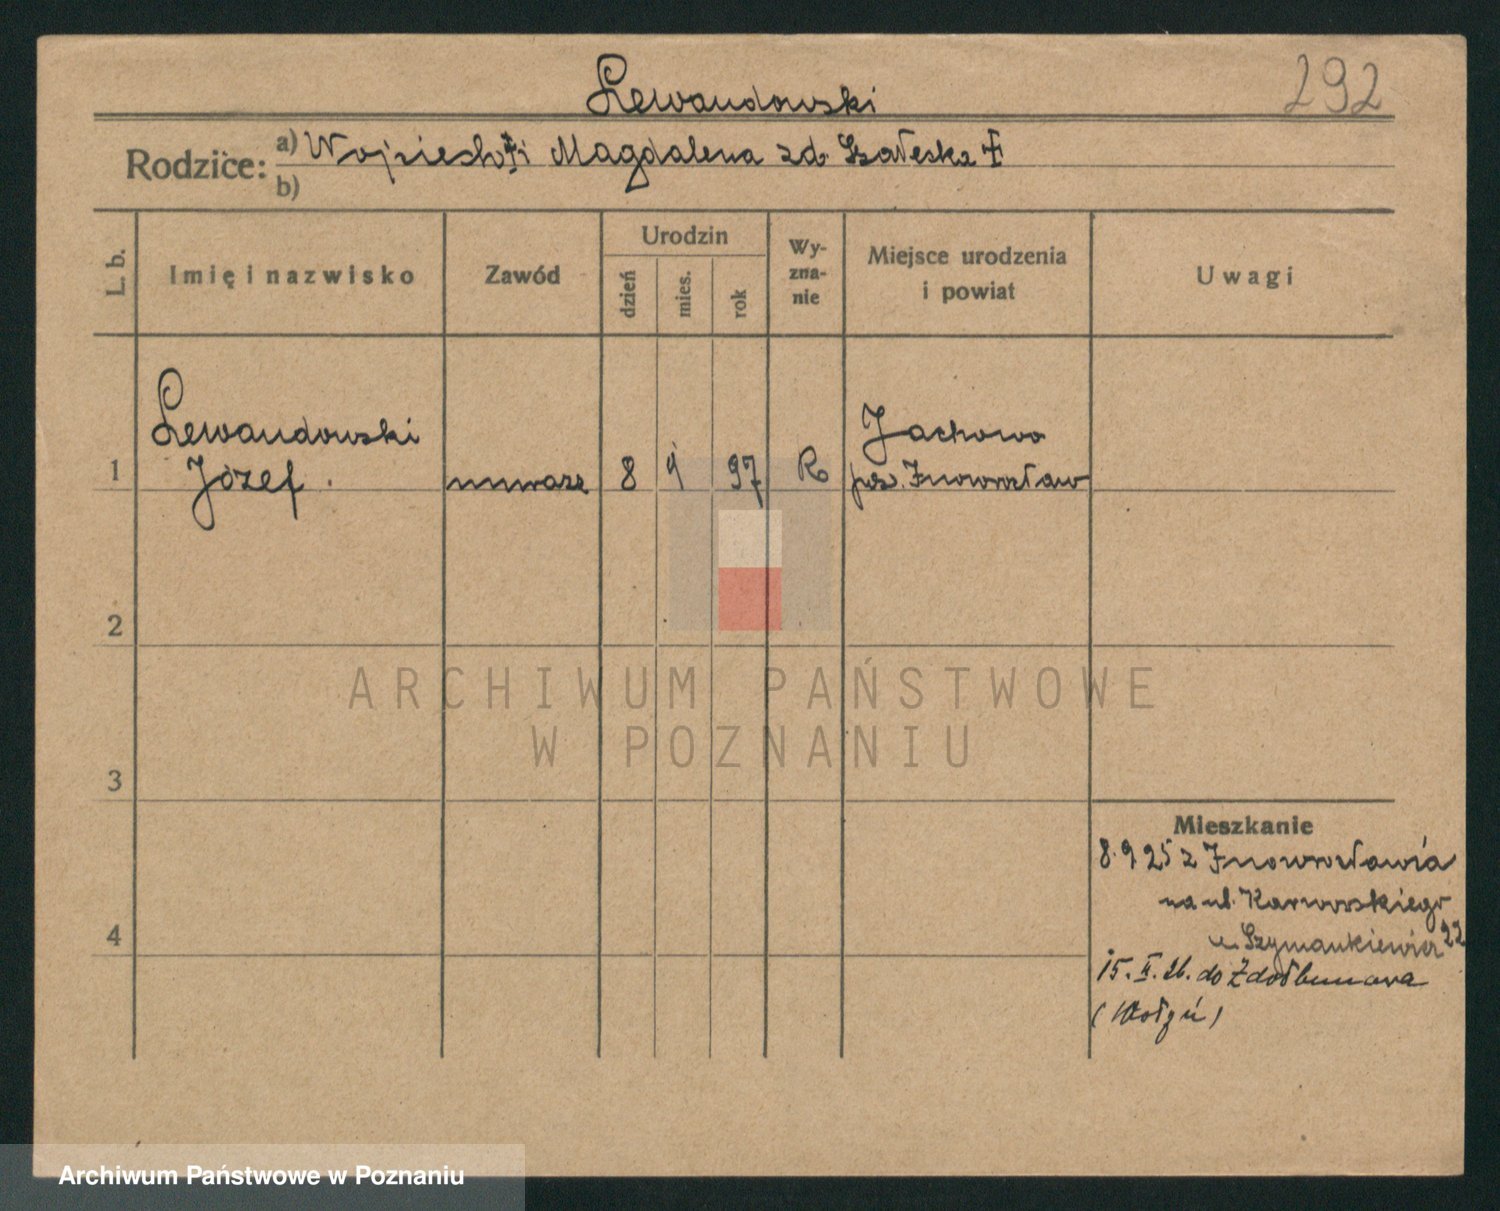 292
Lewandowski
Rodzice: a) Wojciech † i Magdalena zd. Szałeska †
b)
L. b.
Imię i nazwisko
Zawód
Urodzin
dzień
mies.
rok
Wy-
zna-
nie
Miejsce urodzenia
i powiat
Uwagi
1
Lewandowski
Józef.
murarz
8
97
R
Jachowo
pow. Inowrocław
2
3
4
ARCHIWUM PAŃSTWOWE
W POZNANIU
Mieszkanie
8.9 25 z Inowrocławia
na ul. Karwowskiego 22
u Szymankiewicz
15. II. 26. do Zdołbunowa
(Wołyń)
Archiwum Państwowe w Poznaniu